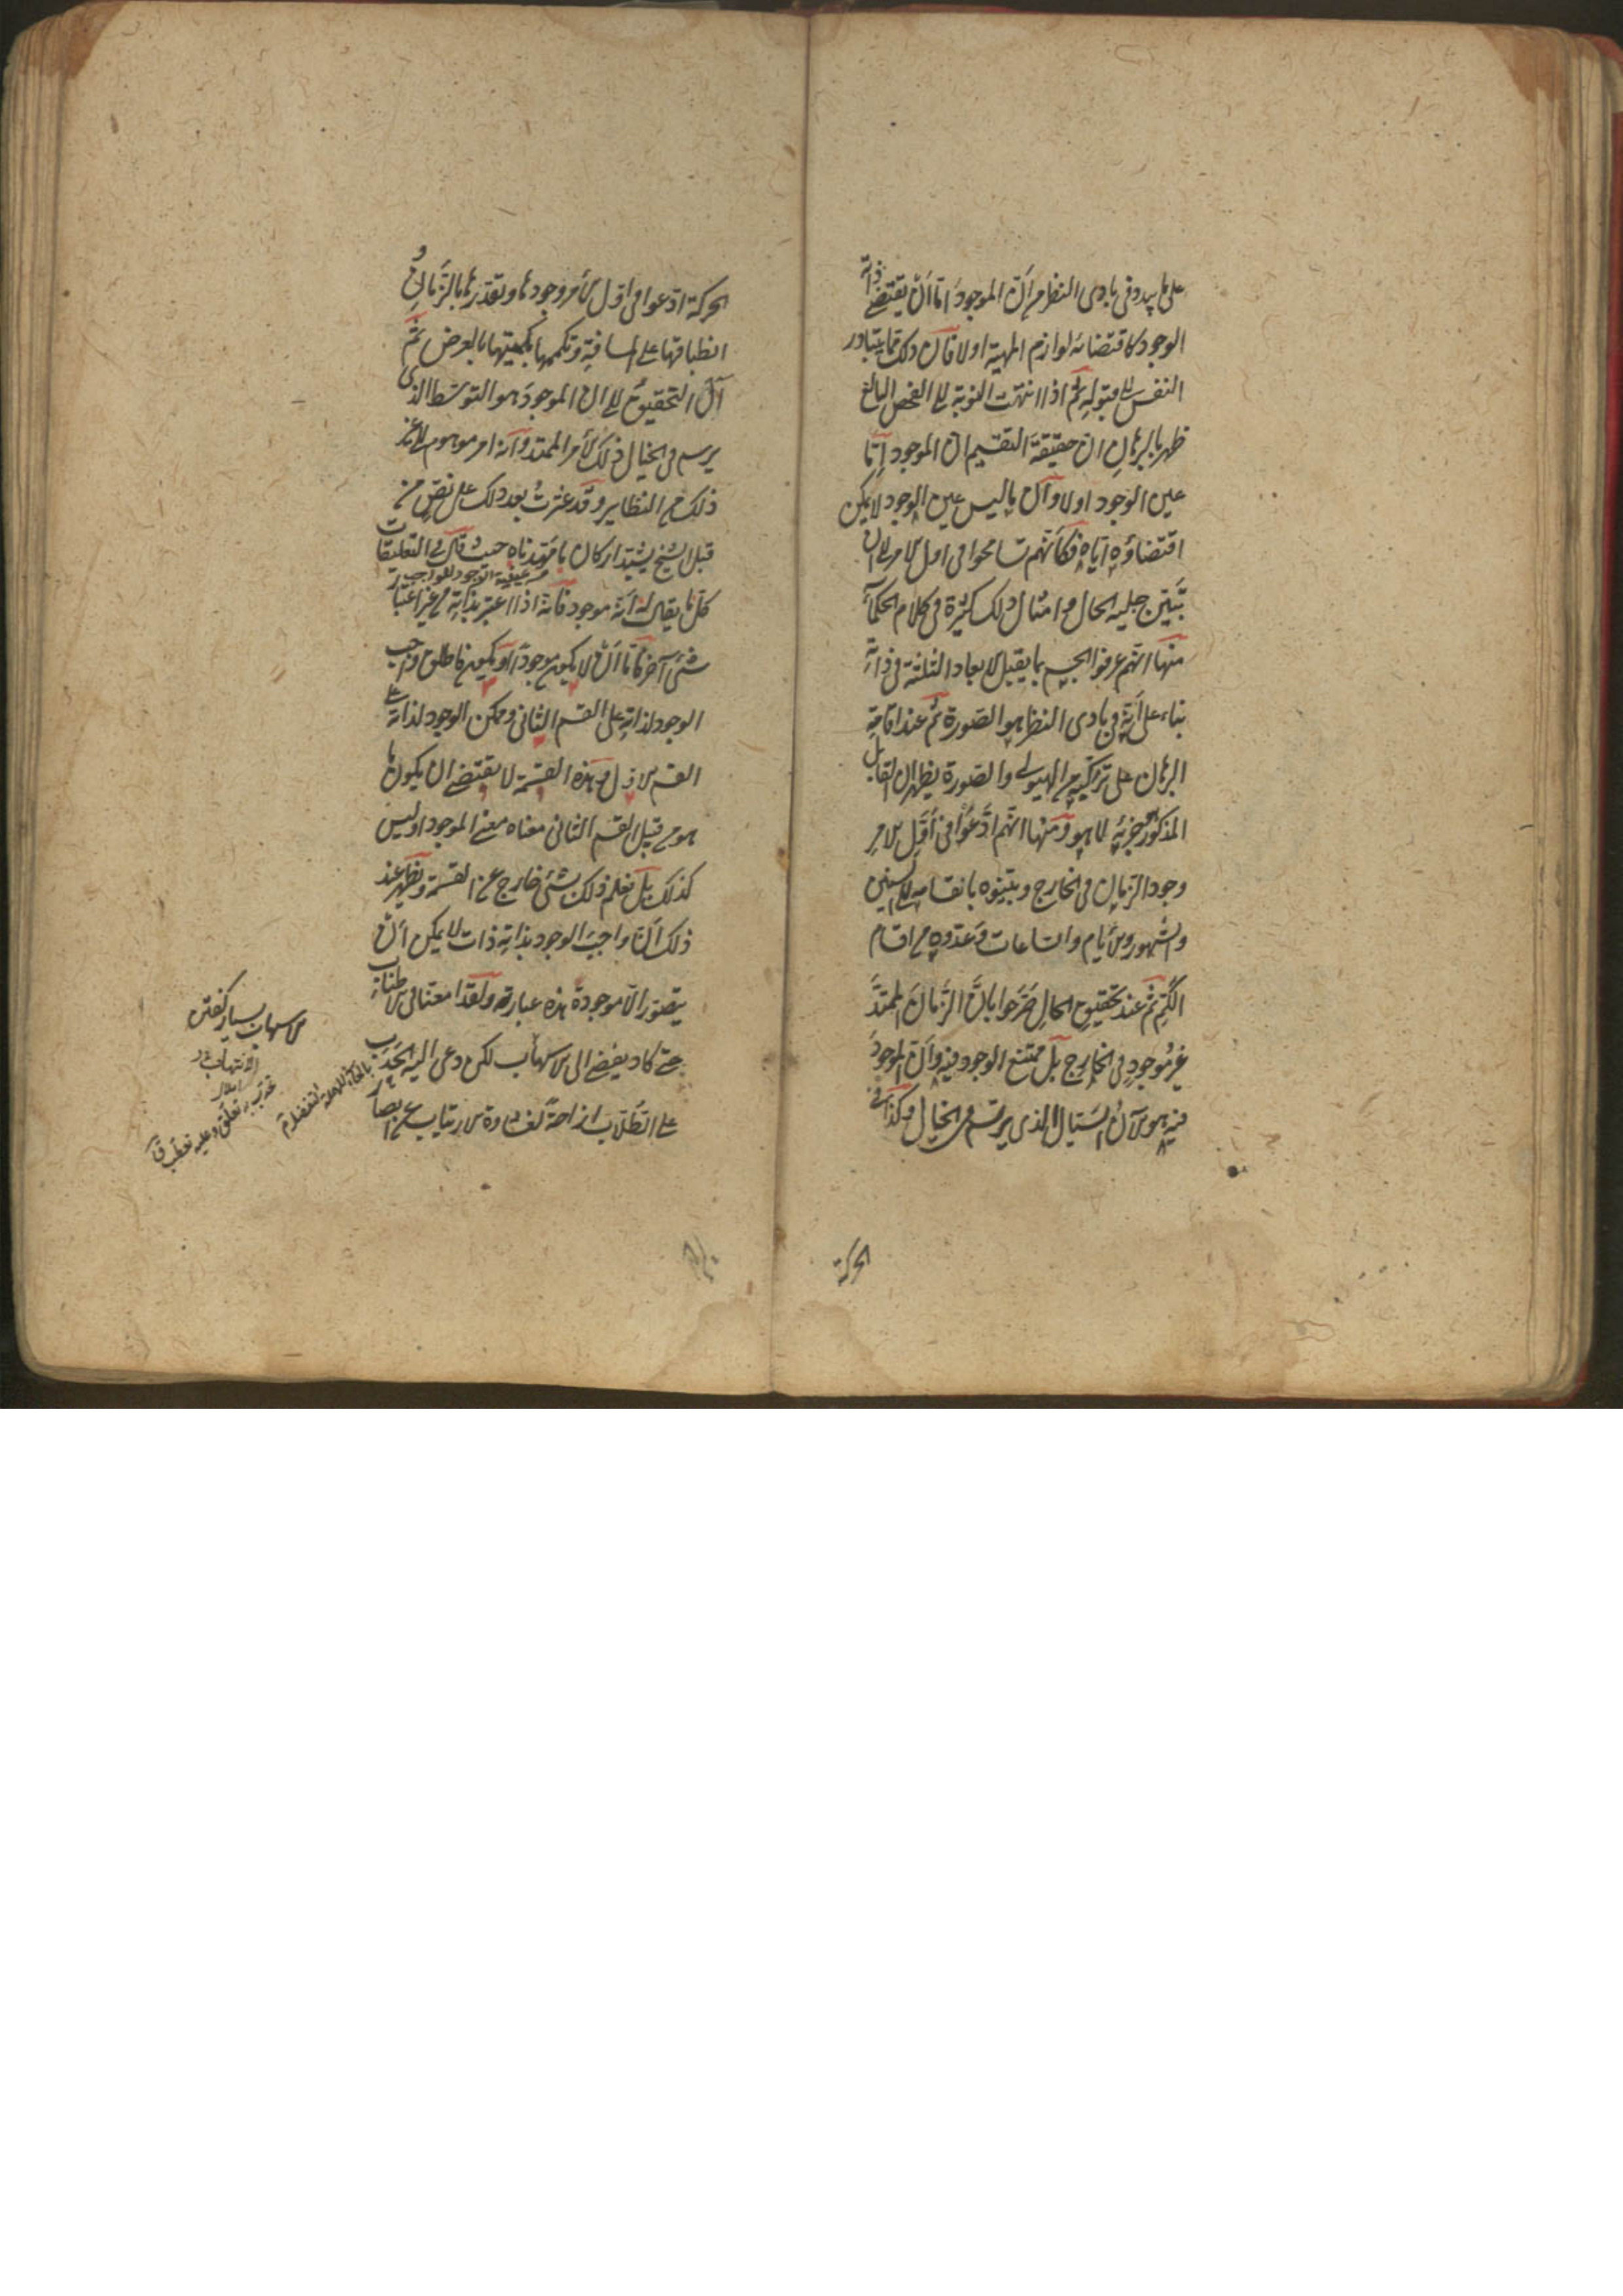 على ما يبدو في بادى النظر من أنّ الموجود امّا أنْ يقتضي ذاته
الوجود كاقتضائه لوازم المهية اولا فان ذلك مما يتبادر
النفس الى قبوله ثم اذا انتهت النوبة الى الفحص البالغ
ظهر بالبرهان ان حقيقة التقسيم ان الموجود إمّا
عين الوجود اولا وان ما ليس عين الوجود لا يمكن
اقتضاؤه اياه فكأنهم تسامحوا في اول الامر الى ان
تبيّن جلية الحال وامثال ذلك كثيرة في كلام الحكمآء
منها انهم عرفوا الجسم بما يقبل الابعاد الثلثة في ذاته
بناء على أنه في بادى النظر هو الصورة ثم عند اقامة
البرهان على تركبه من الهيولى والصورة يظهر ان القابل
المذكور جزئه لا هو ومنها انهم ادّعوا في أوّل الامر
وجود الزمان في الخارج وبيّنوه بانقسامه الى السنين
والشهور والأيام والساعات وعدّوه من اقسام
الكم ثمّ عند تحقيق الحال صرّحوا بانّ الزمان الممتدّ
غير موجود في الخارج بل ممتنع الوجود فيه وان الموجود
فيه هو الآن السيّال الذى يرتسم في الخيال وكذا في
الحركة
الحركة ادّعوا في اوّل الأمر وجودها وتقدّرها بالزمان و
انطباقها على المسافة وتكممها بكميتها بالعرض ثم
آل التحقيق الى ان الموجود هو التوسّط الذى
يرسم في الخيال ذلك الأمر الممتد وأنه امر موهوم الى غير
ذلك من النظاير وقد عثرت بعد ذلك على نص من
قبل الشيخ يشيّد اركان ما مهّدناه حيث قال في التعليقات
من عينية الوجود للواجب
كل ما يقال له أنه موجود فانه اذا اعتبر بذاته من غير اعتبار
شئ آخر فامّا أنْ لا يكون موجوداً او يكون فاطلق واجب
الوجود لذاته على القسم الثانى وممكن الوجود لذاته على
القسم الاول وهذه القسمة لا يقتضي ان يكون ما
هو من قبيل القسم الثانى معناه معنى الموجود اوليس
كذلك بل نعلم ذلك بشئ خارج عن القسمة ويظهر عند
ذلك أنّ واجب الوجود بذاته ذات لا يمكن أنْ
يتصوّر الّا موجودة هذه عبارته ولقد امعنا في الاطناب
حتى كاد يفضي الى الاسهاب لكن دعى اليه الحدب
على الطلّاب ازاحة لغشاوة الارتياب عن ابصار
الاسهاب بسيار كفتن